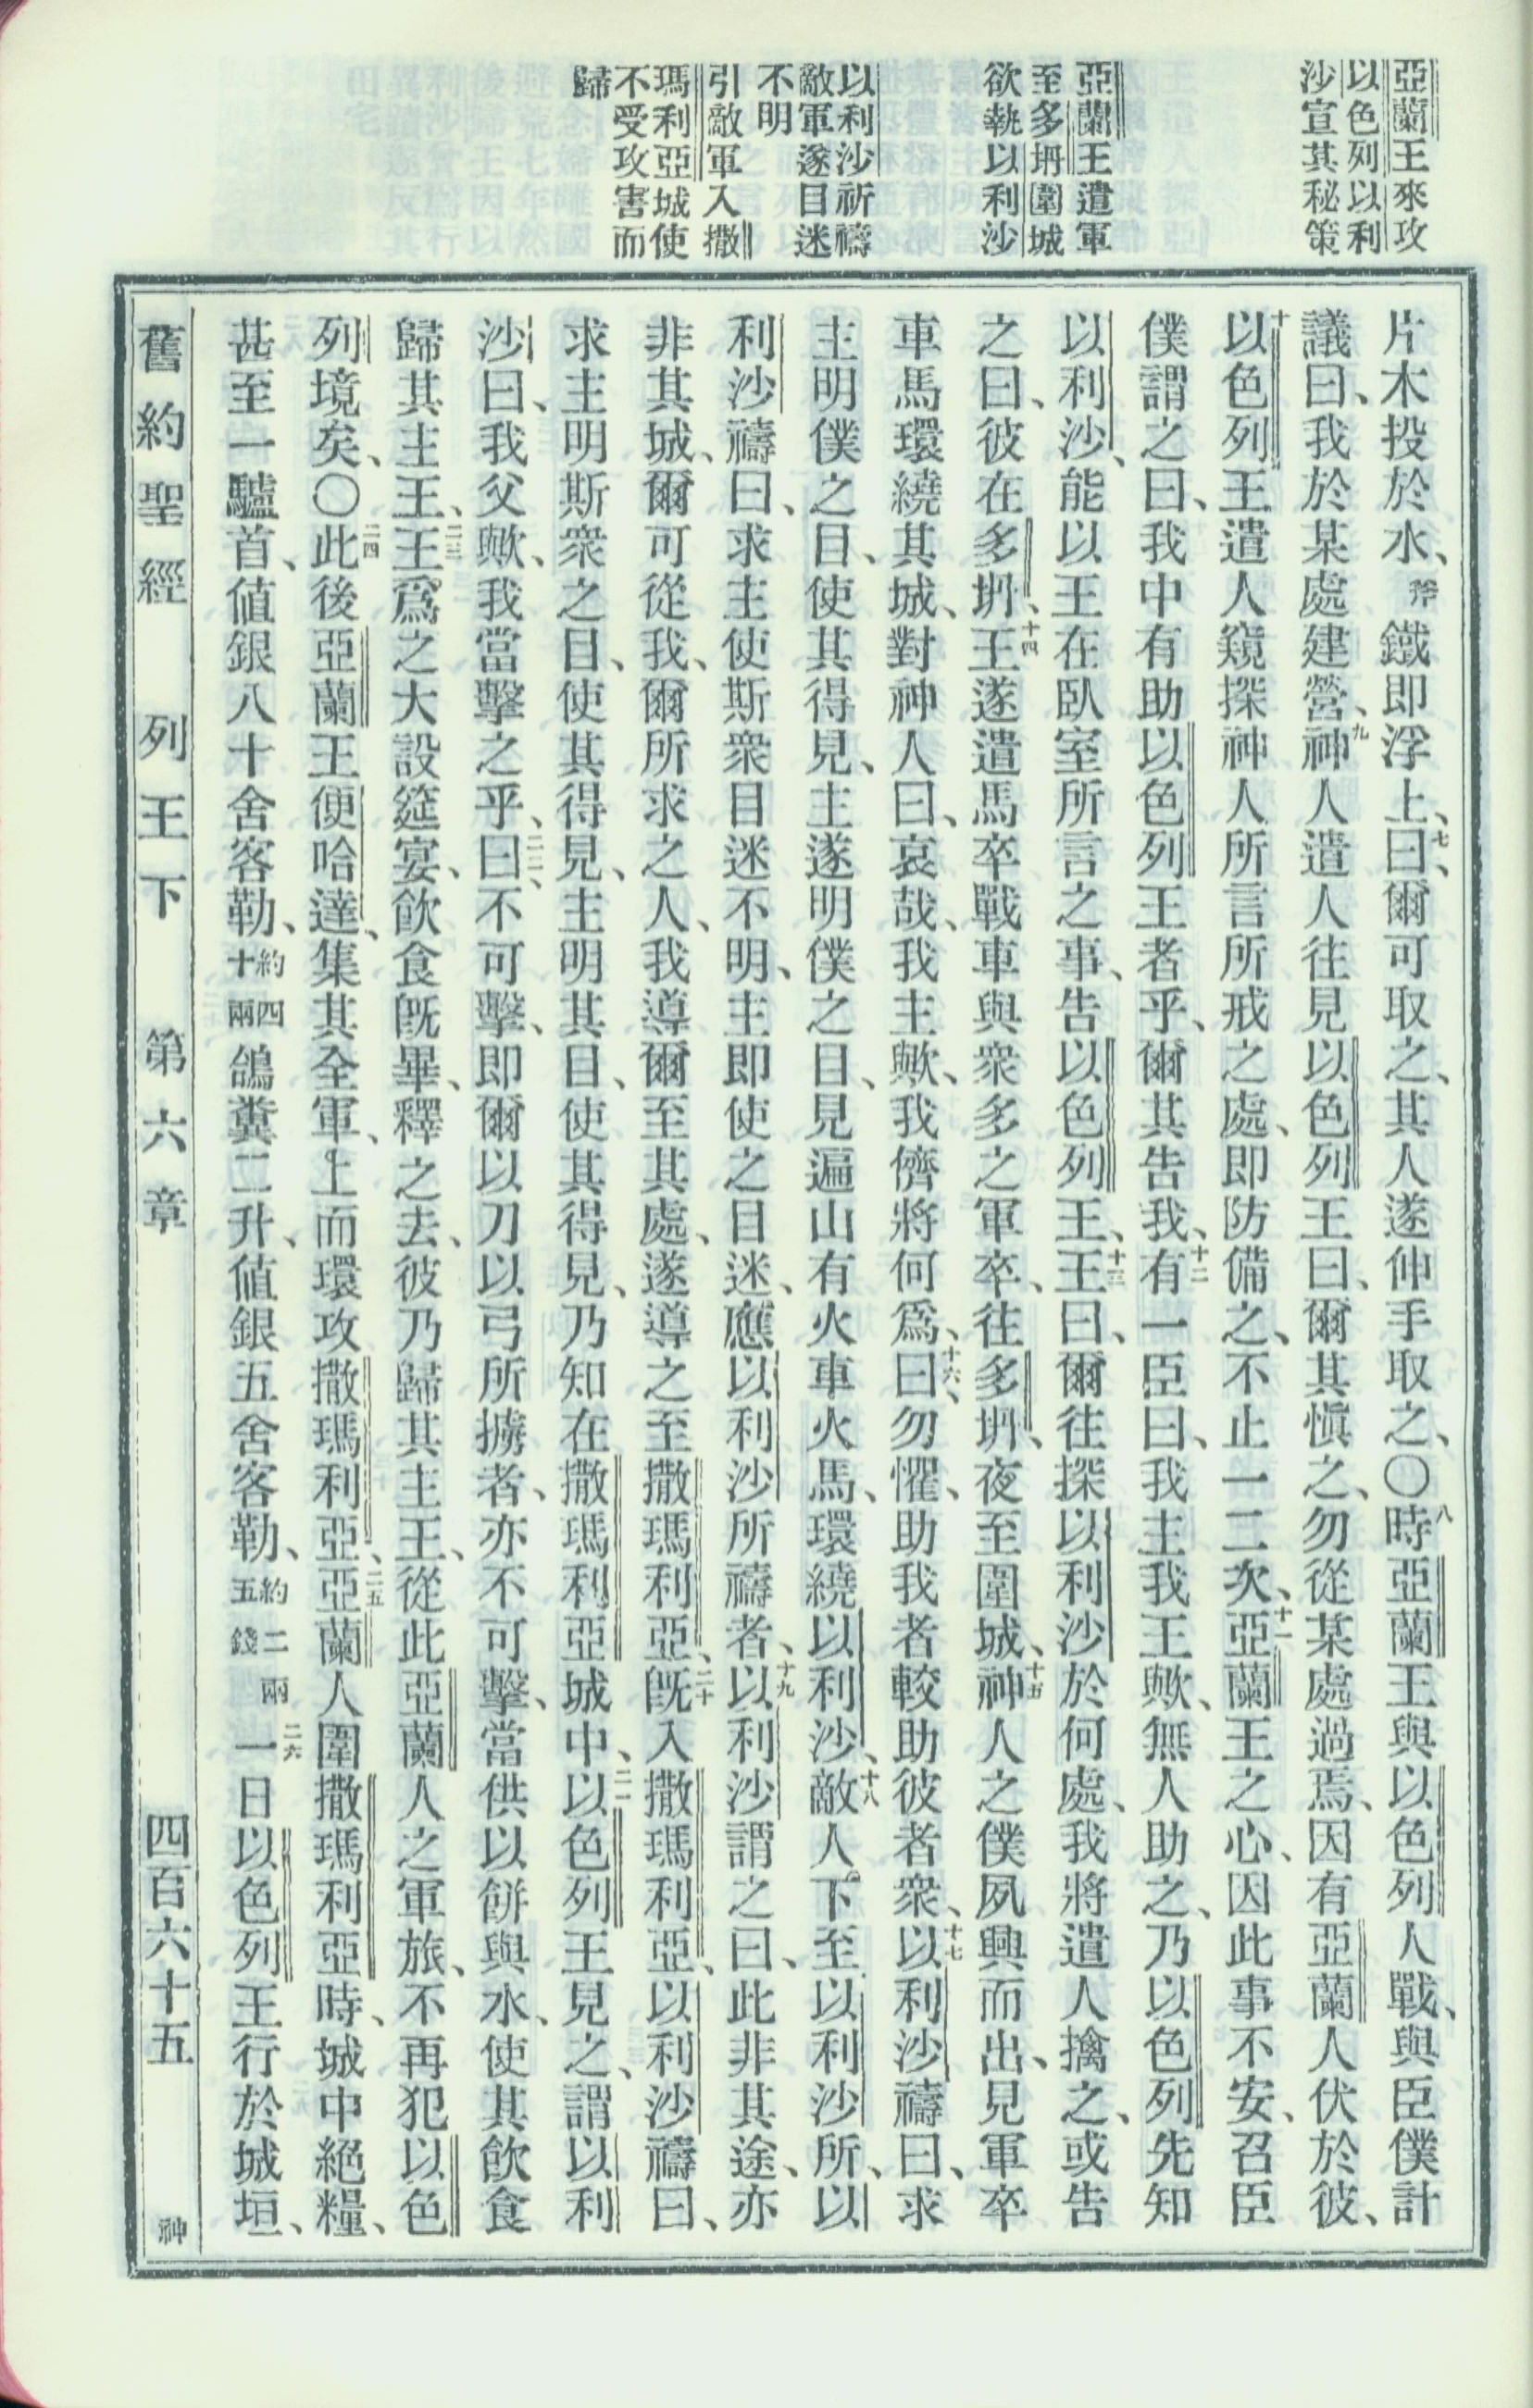 亞蘭王來攻
以色列以利
沙宣其秘策
亞蘭王遣軍
至多坍圍城
欲執以利沙
以利沙祈禱
敵軍遂目迷
不明
引敵軍入撒
瑪利亞城使
不受攻害而
歸
片木投於水、斧鐵即浮上、七曰、爾可取之、其人遂伸手取之、〇八時亞蘭王與以色列人戰、與臣僕計
議曰、我於某處建營、九神人遣人往見以色列王曰、爾其慎之、勿從某處過焉、因有亞蘭人伏於彼、
十以色列王遣人窺探神人所言所戒之處、即防備之、不止一二次、十一亞蘭王之心、因此事不安、召臣
僕謂之曰、我中有助以色列王者乎、爾其告我、十二有一臣曰、我主我王歟、無人助之、乃以色列先知
以利沙、能以王在臥室所言之事、告以色列王、十三王曰、爾往探以利沙於何處、我將遣人擒之、或告
之曰、彼在多坍、十四王遂遣馬卒戰車與衆多之軍卒、往多坍、夜至圍城、十五神人之僕夙興而出、見軍卒
車馬環繞其城、對神人曰、哀哉、我主歟、我儕將何爲、十六曰、勿懼、助我者較助彼者衆、十七以利沙禱曰、求
主明僕之目、使其得見、主遂明僕之目、見遍山有火車火馬、環繞以利沙、十八敵人下至以利沙所、以
利沙禱曰、求主使斯衆目迷不明、主即使之目迷、應以利沙所禱者、十九以利沙謂之曰、此非其途、亦
非其城、爾可從我、爾所求之人、我導爾至其處、遂導之至撒瑪利亞、二十既入撒瑪利亞、以利沙禱曰、
求主明斯衆之目、使其得見、主明其目、使其得見、乃知在撒瑪利亞城中、二一以色列王見之、謂以利
沙曰、我父歟、我當擊之乎、二二曰、不可擊、即爾以刀以弓所擄者、亦不可擊、當供以餅與水、使其飲食
歸其主王、二三王爲之大設筵宴、飲食既畢、釋之去、彼乃歸其主王、從此亞蘭人之軍旅、不再犯以色
列境矣、〇二四此後亞蘭王便哈達、集其全軍、上而環攻撒瑪利亞、二五亞蘭人圍撒瑪利亞時、城中絕糧、
甚至一驢首、值銀八十舍客勒、約四十兩鴿糞二升、值銀五舍客勒、約二兩五錢二六一日以色列王行於城垣、
舊約聖經　列王下　第六章　四百六十五　神